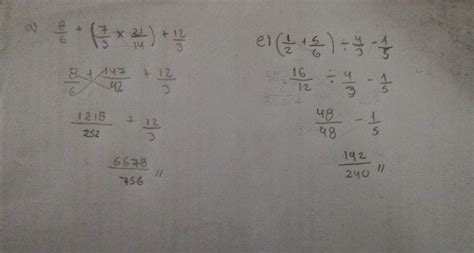 a) 8/6 + (7/3 x 21/14) + 12/3
8/6 + 147/42 + 12/3
1218/252 + 12/3
6678/756 //
e) (1/2 + 5/6) ÷ 4/3 - 1/5
16/12 ÷ 4/3 - 1/5
48/48 - 1/5
192/240 //